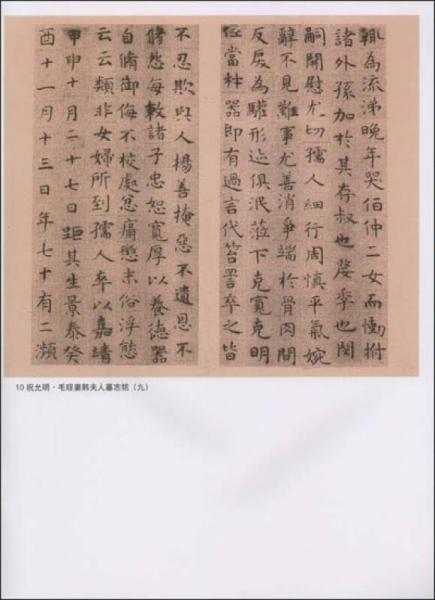 輒為流涕晚年哭伯仲二女而慟拊
諸外孫加於其存叔也嫠季也閔
嗣關慰尤切孺人細行周慎平氣婉
辭不見難事尤善消爭端於骨肉間
反戾為驩形迹俱泯蒞下克寬克明
當器即有過言代笞詈卒之皆
不忍欺與人揚善掩惡不遺恩不
脩怨每敕諸子忠恕寬厚以養德器
自脩御侮不校處忿痛懲末俗浮態
云云類非女婦所到孺人卒以嘉靖
甲申十月二十七日距其生景泰癸
酉十一月十三日年七十有二瀕
10 祝允明·毛珵妻韩夫人墓志铭（九）